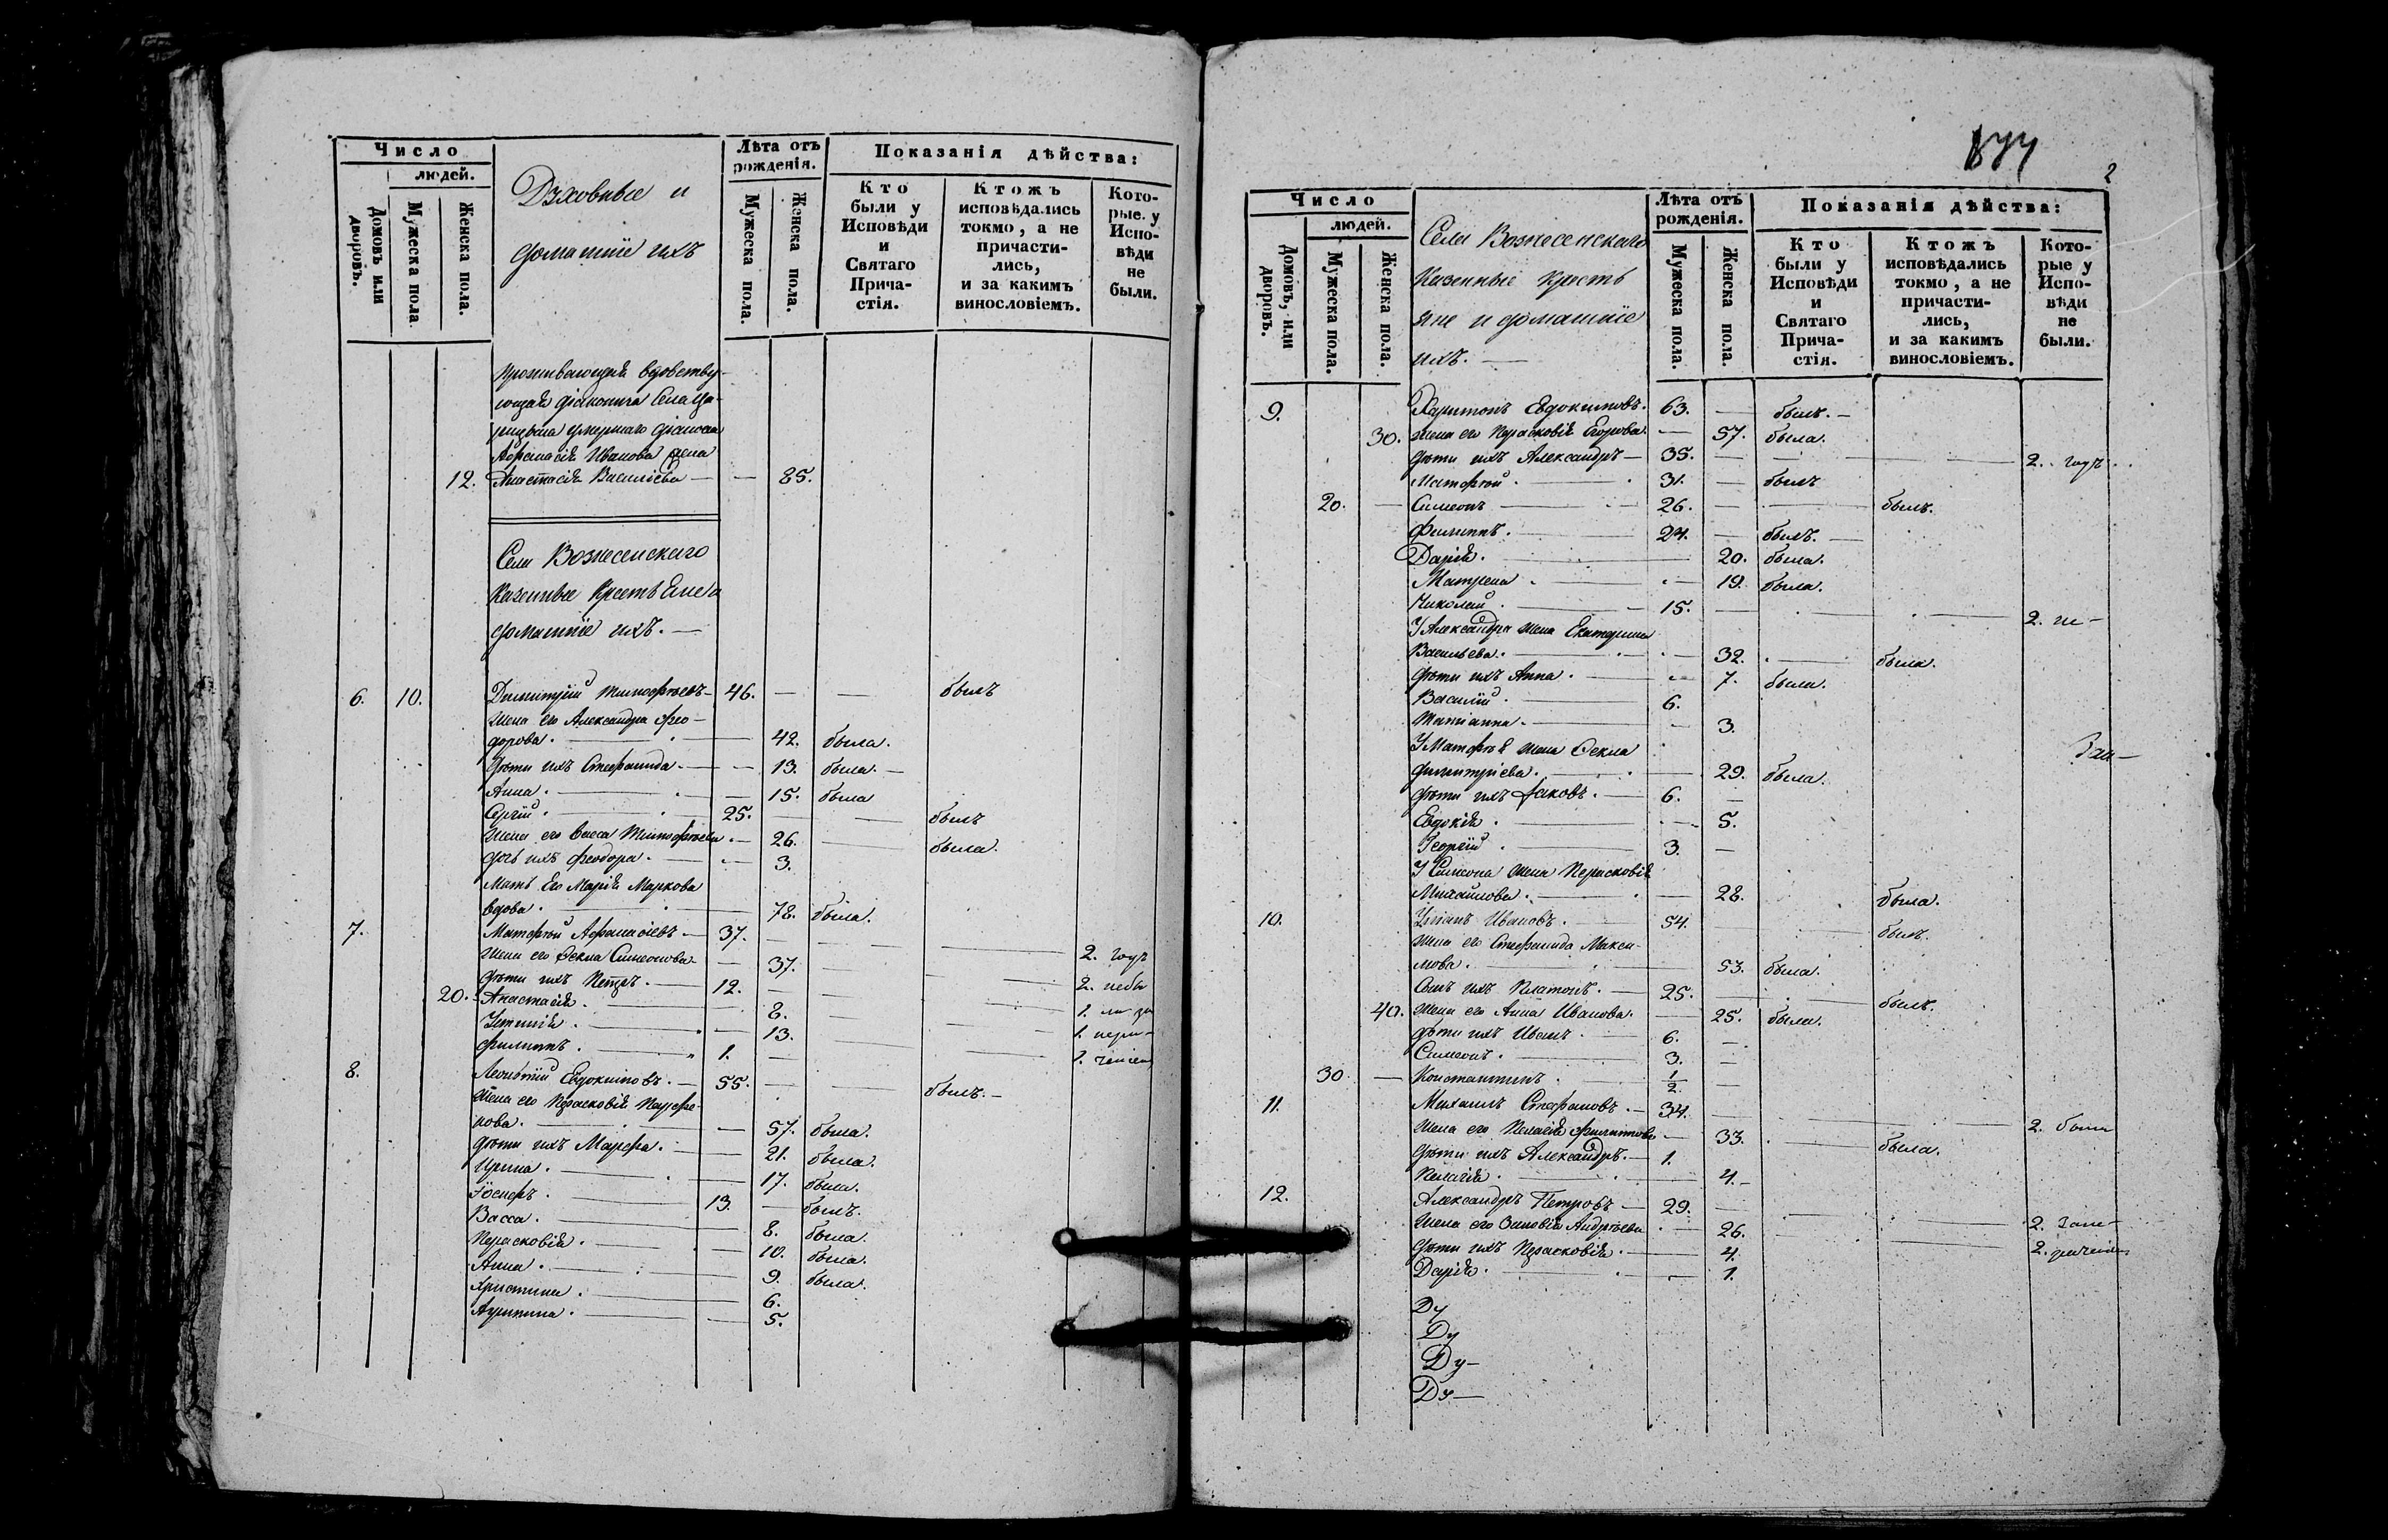 Число
людей.
Домовъ или дворовъ.
Мужеска пола
Женска пола.
Духовные и
домашніе ихъ
Лѣта отъ рожденія.
Мужеска пола.
Женска пола.
Показанія дѣйства:
Кто были у Исповѣди и Святаго Прича-стія.
Ктожъ исповѣдались токмо, а не причасти-лись, и за какимъ винословіемъ.
Кото-рые у Испо-вѣди не были.
проживающая вдовству-
ющая діаконица Села Ца-
рицына умершаго діакона
Афанасія Иванова жена
12. Анастасія Васильева — — 85.
Села Вознесенскаго
Казенные Крестьяне и
домашніе ихъ. —
6. 10. Димитрій Тимофеевъ — 46. — — былъ
жена его Александра Фео-
дорова. — 42. была.
дѣти ихъ Стефанида. — — 13. была. —
Анна. — — 15. была
Сергій. — 25. — — былъ
жена его Васса Тимофеева. — 26. — была.
дочь ихъ Феодора. — — 3.
Мать Его Марія Маркова
вдова. — 78. была.
7. Матфей Афанасіевъ — 37. — — — 2. годъ
жена его Ѳекла Симеонова. — 37. — — 2. небы
дѣти ихъ Петръ. — 12. — — — 1. ли за
20. Анастасія. — 8. — — 1. нера-
Устинія. — — 13. — —
Филиппъ. — 1. — — 1.
8. Леонтій Евдокимовъ. — 55. — — былъ. —
жена его Парасковія Парфе-
нова. — — 57. была.
дѣти ихъ Марфа. — — 21. была.
Ирина. — — 17. была.
Іосифъ. — 13. — былъ.
Васса. — — 8. была.
Парасковія. — — 10. была.
Анна. — — 9. была.
Христина. — 6.
Акилина. — — 5.
2
Число
людей.
Домовъ, или дворовъ.
Мужеска пола.
Женска пола.
Села Вознесенскаго
Казенные кресть
яне и домашніе
ихъ. —
Лѣта отъ рожденія.
Мужеска пола.
Женска пола.
Показанія дѣйства:
Кто были у Исповѣди и Святаго Прича-стія.
Ктожъ исповѣдались токмо, а не причасти-лись, и за какимъ винословіемъ.
Кото-рые у Испо-вѣди не были.
9. Харитонъ Евдокимовъ. 63. — былъ. —
30. жена его Парасковія Егорова. — 57. была.
дѣти ихъ Александръ — 35. — — — 2. годъ.
Матфей. — 31. — былъ
20. — Симеонъ — 26. — — былъ.
Филиппъ. — 24. — былъ. —
Дарія. — 20. была.
Матрена. — — 19. была.
Николай. — 15. — — 2. не —
У Александра жена Екатерина
Васильева. — — 32. — была.
дѣти ихъ Анна. — — 7. была.
Василій. — 6.
Маріанна. — — 3.
У Матфея жена Ѳекла
Димитріева. — — 29. была.
дѣти ихъ Іаковъ. — 6. —
Евдокія. — — 5.
Георгій. — 3. —
У Симеона жена Парасковія
Михайлова. — — 28. была.
10. Уліанъ Ивановъ. — 54. — — былъ.
жена его Стефанида Макси-
мова. — 53. была.
Сынъ ихъ Платонъ. — 25. — — былъ.
40. жена его Анна Иванова. — 25. была.
дѣти ихъ Иванъ. — 6. —
Симеонъ. — 3. —
30 — Константинъ. 1/2. —
11. Михаилъ Стефановъ. — 34. — — 2. бы
жена его Пелагія Филиппова — 33. — была.
дѣти ихъ Александръ. — 1.
Пелагія. — — 4. —
12. Александръ Петровъ — 29. — — 2.
жена его Зиновія Андреева. — 26. — — 2.
дѣти ихъ Парасковія. — 4.
Дарія. — — 1.
Ду
Ду
Ду —
Ду —